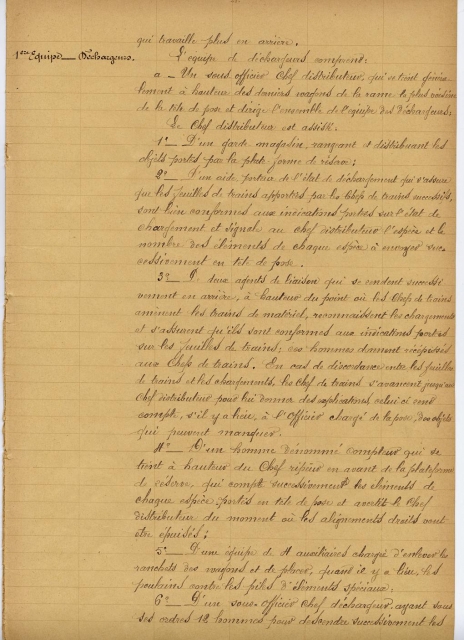 qui travaille plus en arrière.
1ère Equipe — Déchargeurs. L'équipe de déchargeurs comprend:
a — Un sous officier Chef distributeur, qui se tient
lement à hauteur des derniers wagons de la rame la plus
de la tête de pose et dirige l'ensemble de l'équipe des Déchargeurs.
Le Chef distributeur est assisté:
1° — D'un garde magasin, rangeant et distribuant les
objets portés par la plate forme de réserve;
2° — D'un aide porteur de l'état de déchargement qui s'assure
que les feuilles de trains apportées par les Chefs de trains successifs,
sont bien conformes aux indications portées sur l'état de
chargement et signale au chef distributeur l'espèce et le
nombre des éléments de chaque espèce à envoyer suc-
cessivement en tête de pose.
3° — De deux agents de liaison qui se rendent successi
vement en arrière, à hauteur du point où les Chefs de trains
amènent les trains de matériel, reconnaissent les chargements
et s'assurent qu'ils sont conformes aux indications portées
sur les feuilles de trains; ces hommes donnent récépissés
aux Chefs de trains. En cas de discordance entre les feuilles
de trains et les chargements, les Chefs de trains s'avancent jusqu'au
Chef distributeur pour lui donner des explications celui ci rend
compte, s'il y a lieu, à l'Officier chargé de la pose, des objets
qui peuvent manquer.
4° — D'un homme dénommé compteur qui se
tient à hauteur du Chef en avant de la plateforme
de réserve, qui compte successivement les éléments de
chaque espèce, portés en tête de pose et avertit le Chef
distributeur du moment où les alignements droits vont
être épuisés;
5° — D'une équipe de 4 auxiliaires chargé d'enlever les
ranchets des wagons et de placer, quand il y a lieu, les
poulains contre les piles d'éléments spéciaux;
6° — D'un sous-officier chef déchargeur, ayant sous
ses ordres 12 hommes pour descendre successivement les